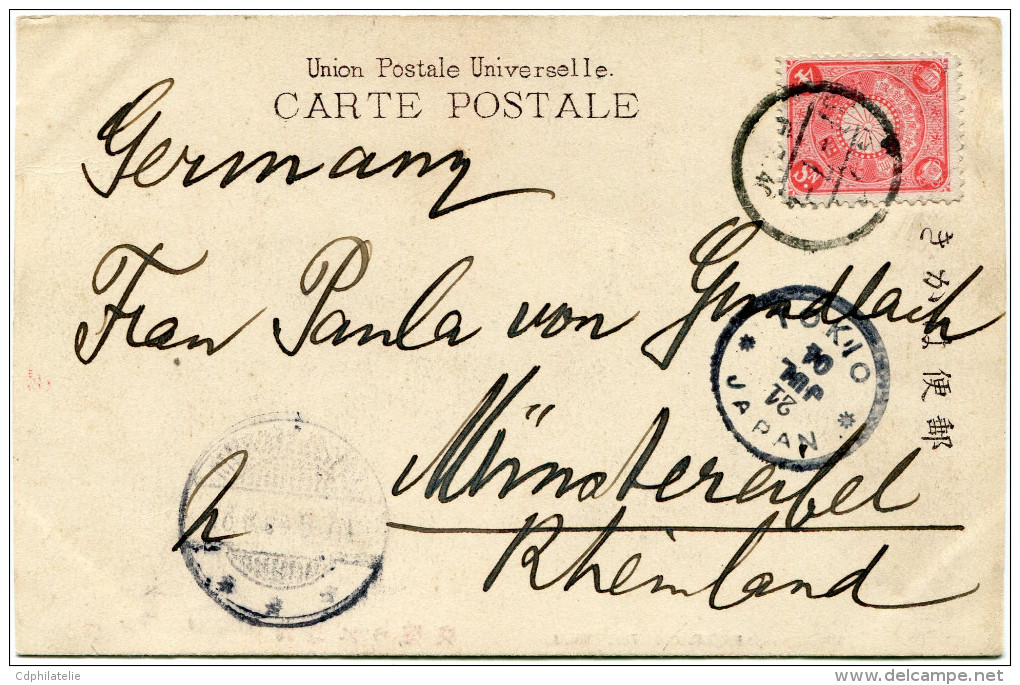 Union Postale Universelle.
CARTE POSTALE
Germany
Frau Paula von Gundlach
Münstereifel
Rheinland
きかは便郵
TOKIO
21
JUL
04
JAPAN
Cdphilatelie
delcampe.net